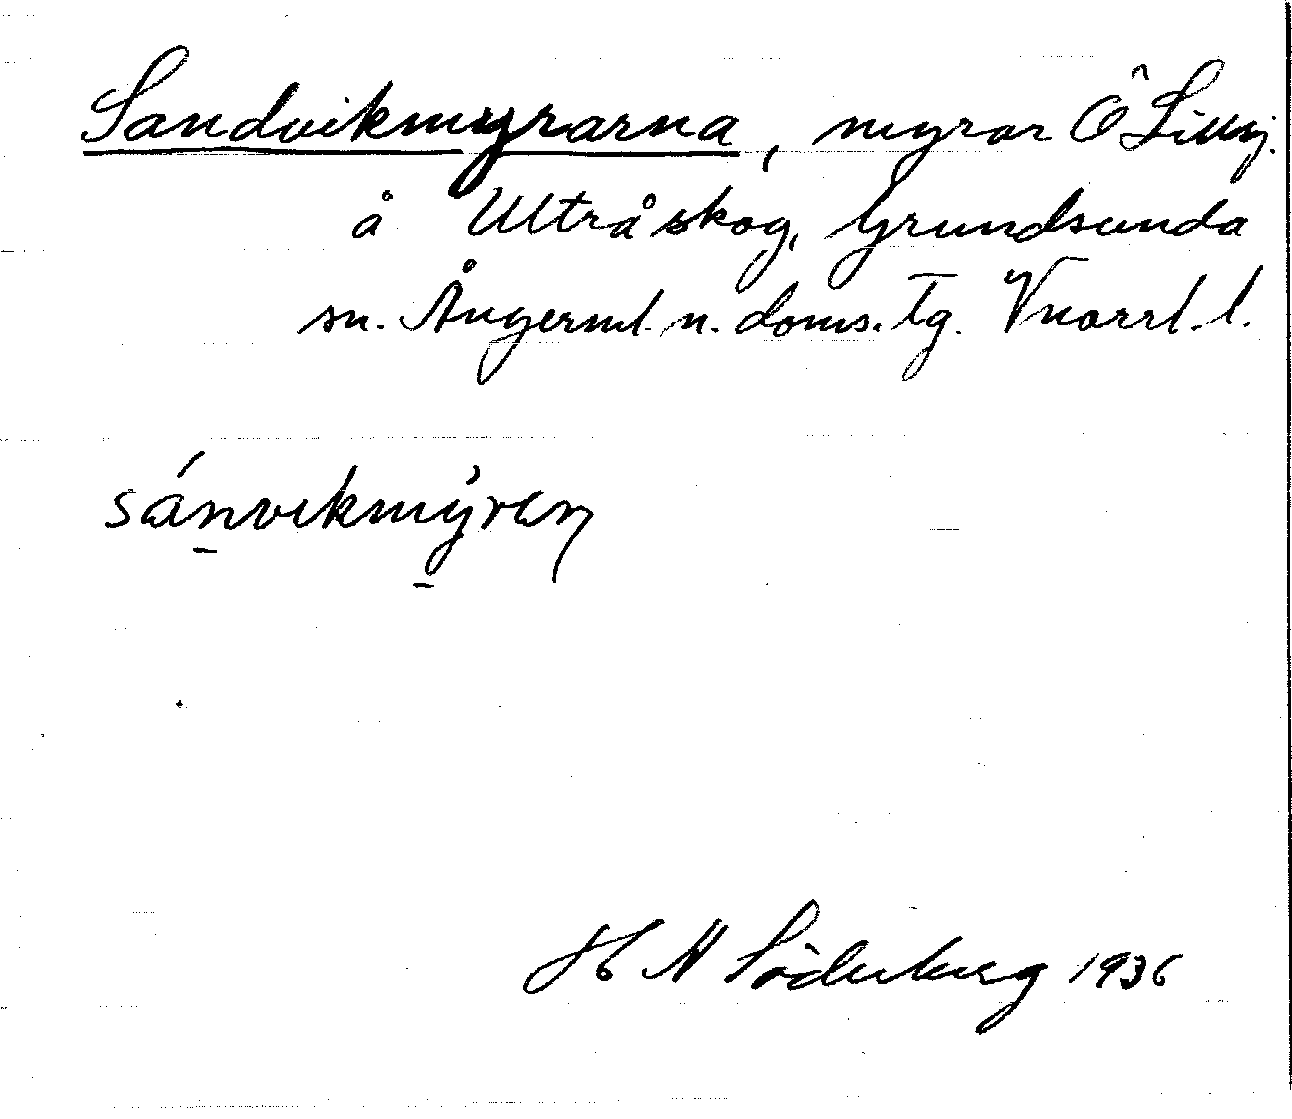 Sandvikmyrarna, myrar Ö Lillsj.
å Ultrå skog, Grundsunda
sn. Ångerml. n. doms. tg. Vnorrl. l.
sánvikmýren
H N Söderberg 1936